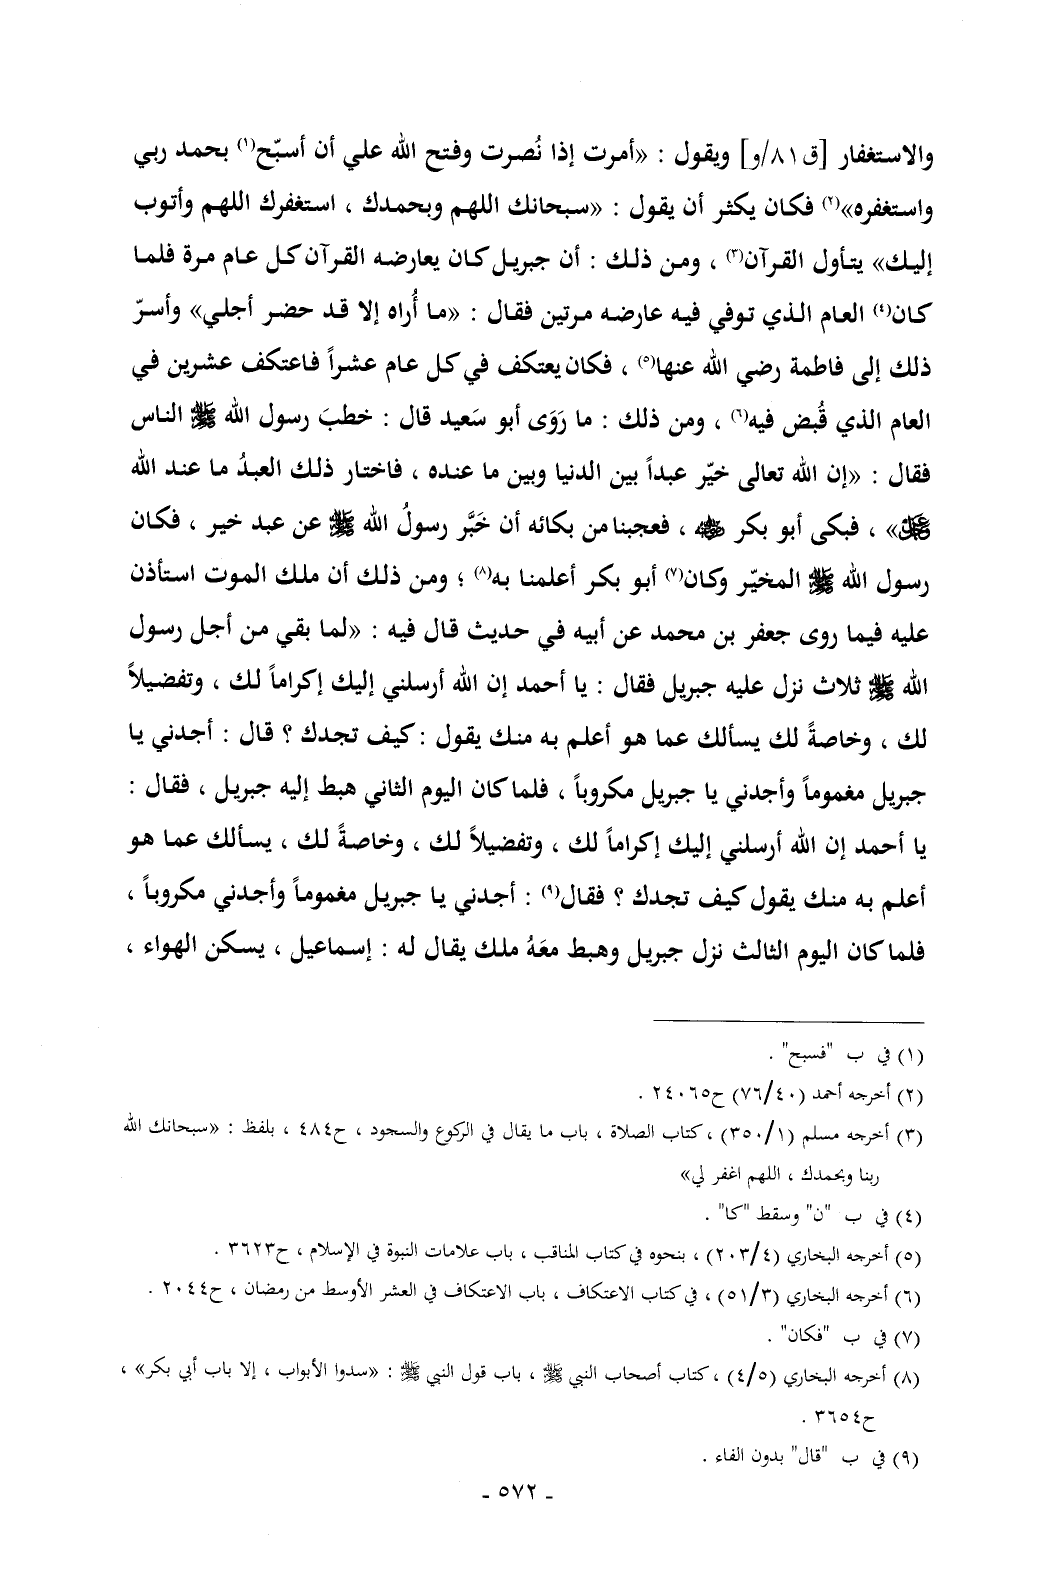 والاستغفار [ق٨١/و] ويقول : «أمرت إذا نُصرت وفتح الله علي أن أسبّح(١) بحمد ربي
واستغفره»(٢) فكان يكثر أن يقول : «سبحانك اللهم وبحمدك ، استغفرك اللهم وأتوب
إليك» يتأول القرآن(٣) ، ومن ذلك : أن جبريل كان يعارضه القرآن كل عام مرة فلما
كان(٤) العام الذي توفي فيه عارضه مرتين فقال : «ما أُراه إلا قد حضر أجلي» وأسرّ
ذلك إلى فاطمة رضي الله عنها(٥) ، فكان يعتكف في كل عام عشراً فاعتكف عشرين في
العام الذي قُبض فيه(٦) ، ومن ذلك : ما رَوَى أبو سَعيد قال : خطبَ رسول الله ﷺ الناس
فقال : «إن الله تعالى خيّر عبداً بين الدنيا وبين ما عنده ، فاختار ذلك العبدُ ما عند الله
عز وجل» ، فبكى أبو بكر رضي الله عنه ، فعجبنا من بكائه أن خَبَّر رسولُ الله ﷺ عن عبد خير ، فكان
رسول الله ﷺ المخيّر وكان(٧) أبو بكر أعلمنا به(٨) ؛ ومن ذلك أن ملك الموت استأذن
عليه فيما روى جعفر بن محمد عن أبيه في حديث قال فيه : «لما بقي من أجل رسول
الله ﷺ ثلاث نزل عليه جبريل فقال : يا أحمد إن الله أرسلني إليك إكراماً لك ، وتفضيلاً
لك ، وخاصةً لك يسألك عما هو أعلم به منك يقول : كيف تجدك ؟ قال : أجدني يا
جبريل مغموماً وأجدني يا جبريل مكروباً ، فلما كان اليوم الثاني هبط إليه جبريل ، فقال :
يا أحمد إن الله أرسلني إليك إكراماً لك ، وتفضيلاً لك ، وخاصةً لك ، يسألك عما هو
أعلم به منك يقول كيف تجدك ؟ فقال(٩) : أجدني يا جبريل مغموماً وأجدني مكروباً ،
فلما كان اليوم الثالث نزل جبريل وهبط معَهُ ملك يقال له : إسماعيل ، يسكن الهواء ،
(١) في ب "فسبح" .
(٢) أخرجه أحمد (٧٦/٤٠) ح٢٤٠٦٥ .
(٣) أخرجه مسلم (٣٥٠/١) ، كتاب الصلاة ، باب ما يقال في الركوع والسجود ، ح٤٨٤ ، بلفظ : «سبحانك الله
ربنا وبحمدك ، اللهم اغفر لي»
(٤) في ب "ن" وسقط "كا" .
(٥) أخرجه البخاري (٢٠٣/٤) ، بنحوه في كتاب المناقب ، باب علامات النبوة في الإسلام ، ح٣٦٢٣ .
(٦) أخرجه البخاري (٥١/٣) ، في كتاب الاعتكاف ، باب الاعتكاف في العشر الأوسط من رمضان ، ح٢٠٤٤ .
(٧) في ب "فكان" .
(٨) أخرجه البخاري (٤/٥) ، كتاب أصحاب النبي ﷺ ، باب قول النبي ﷺ : «سدوا الأبواب ، إلا باب أبي بكر» ،
ح٣٦٥٤ .
(٩) في ب "قال" بدون الفاء .
- ٥٧٢ -